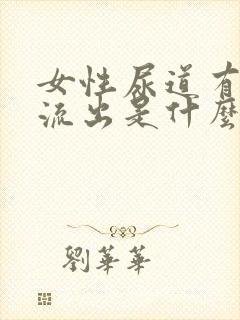 女性尿道有
流出是什麼
劉華華